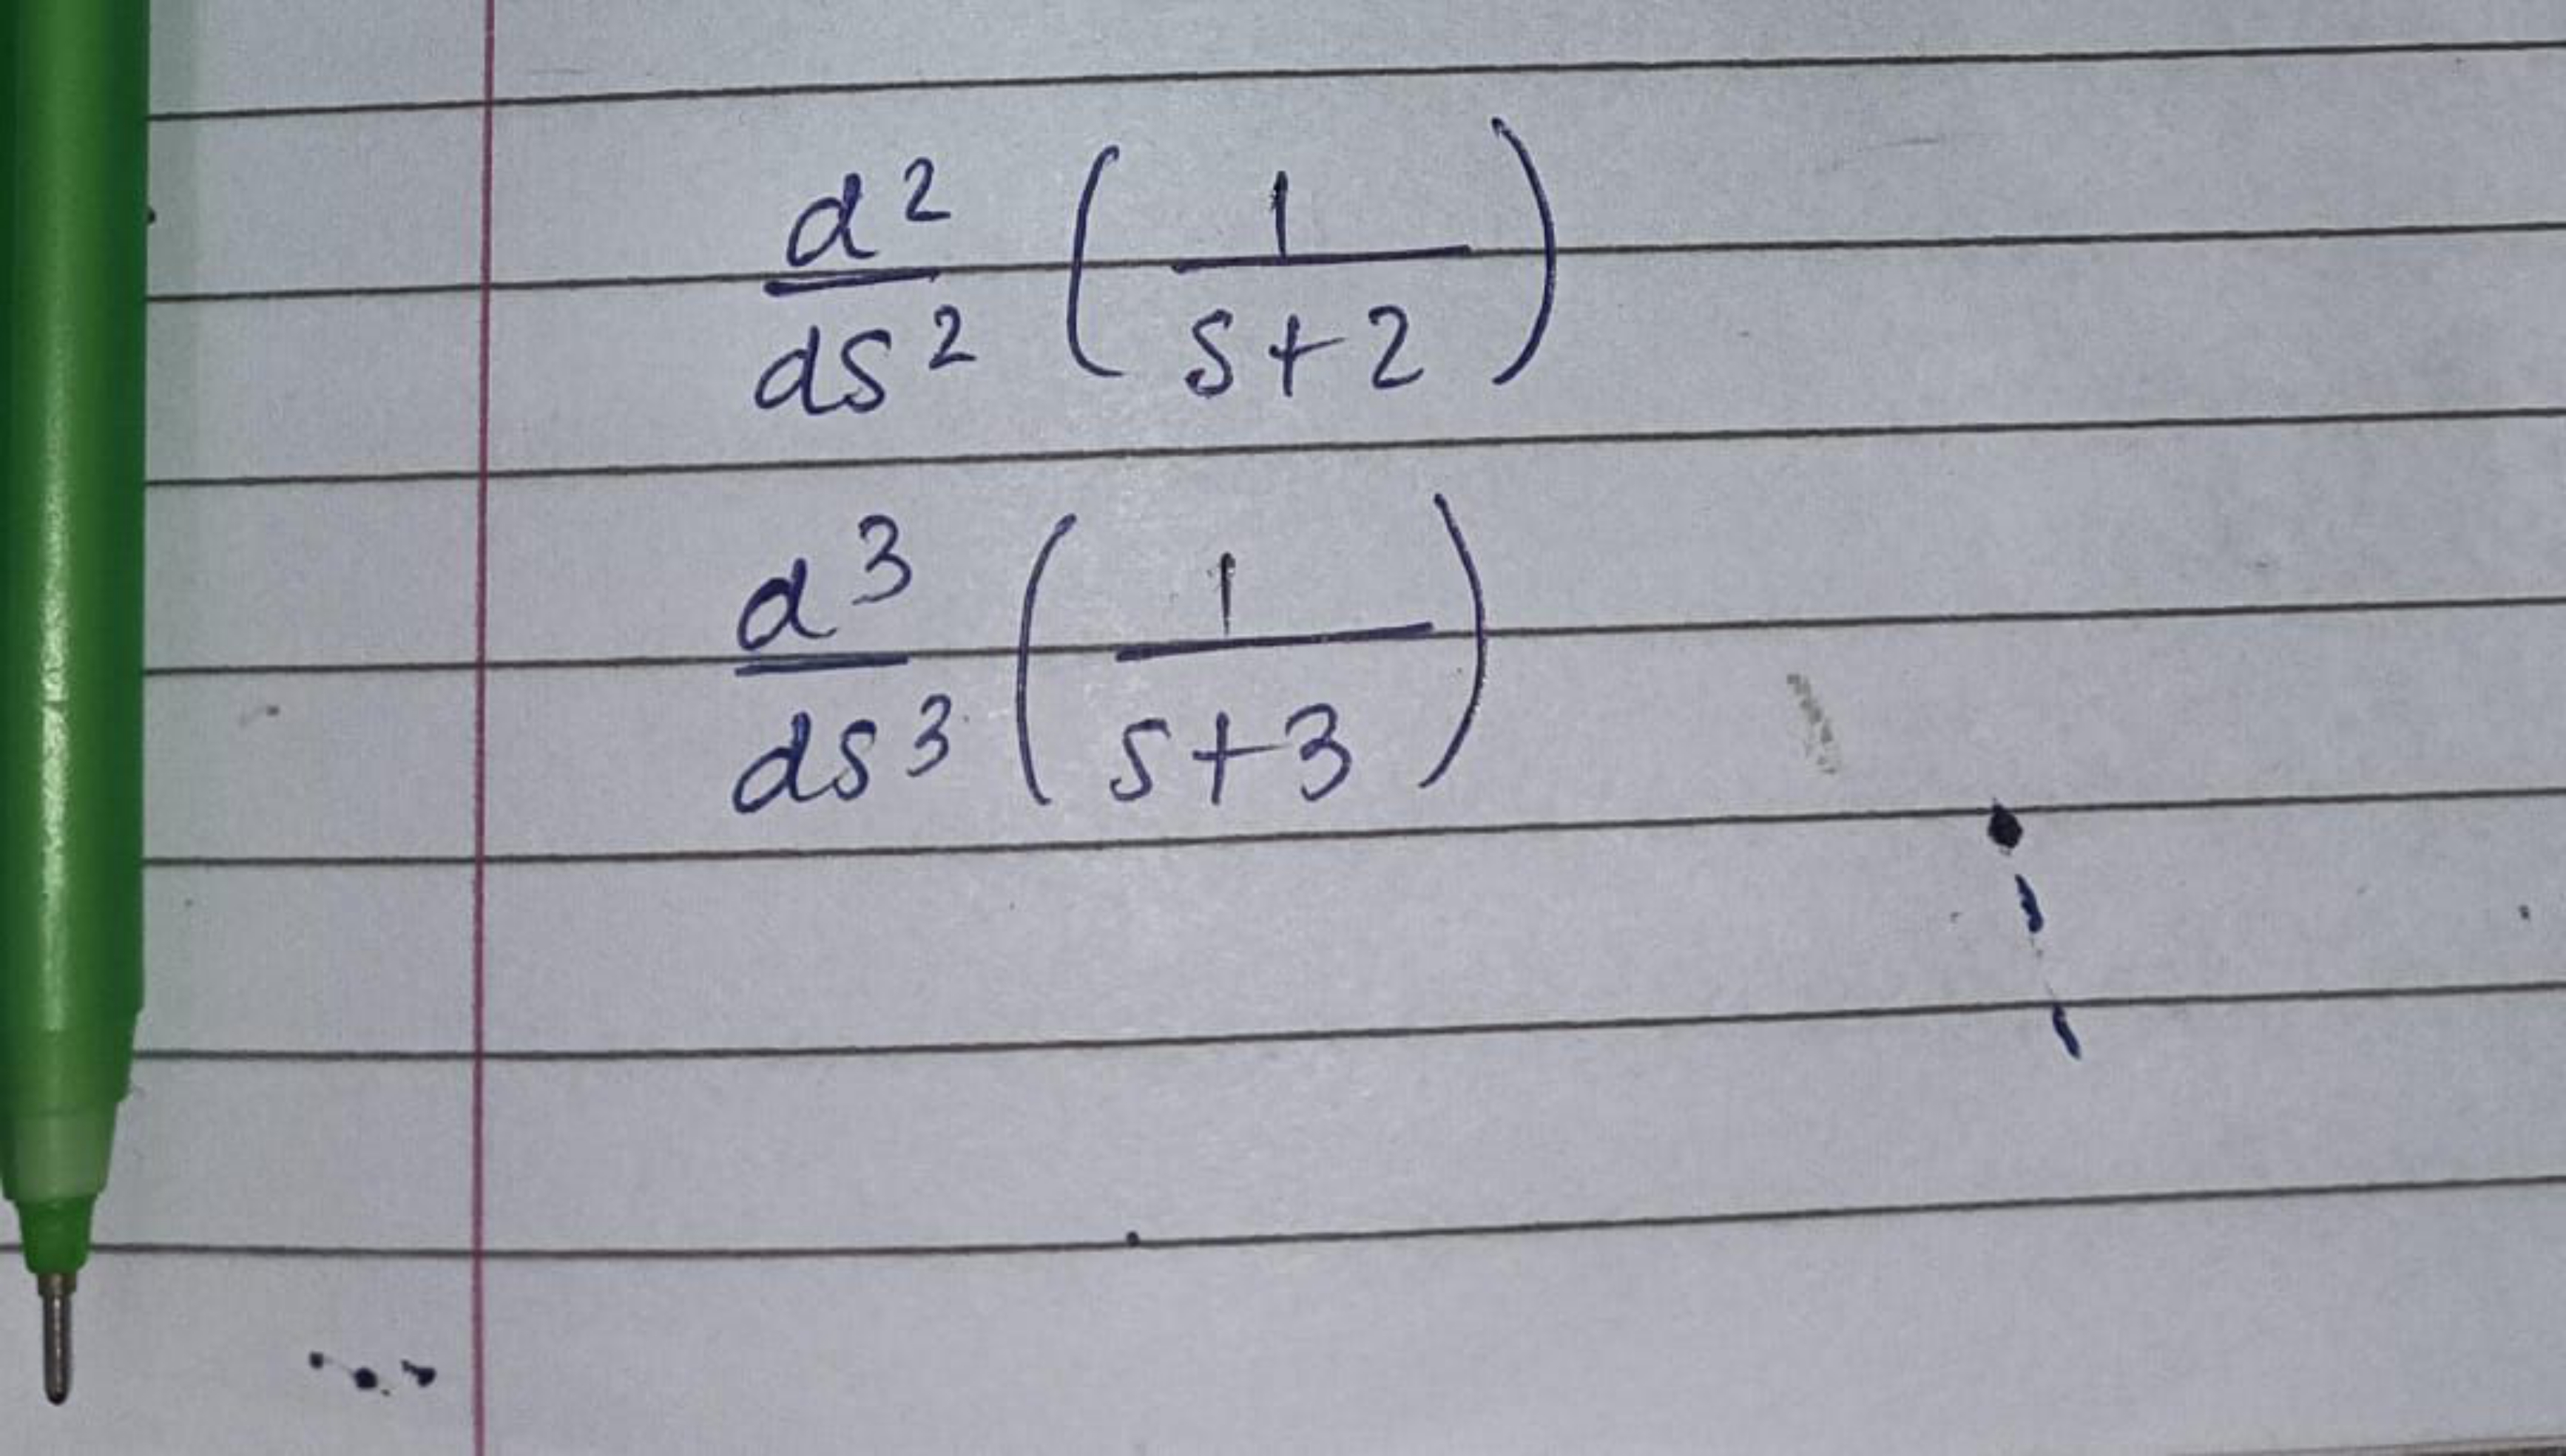 d²/ds² (1/(s+2))
d³/ds³ (1/(s+3))